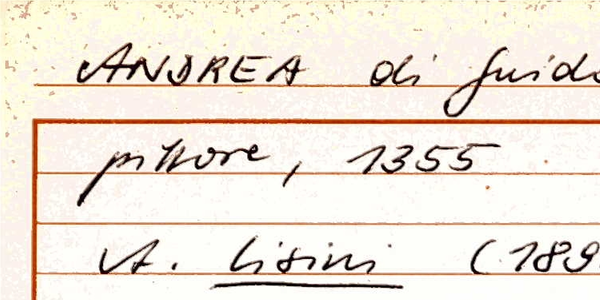 ANDREA di Guido
pittore, 1355
A. Lisini (189